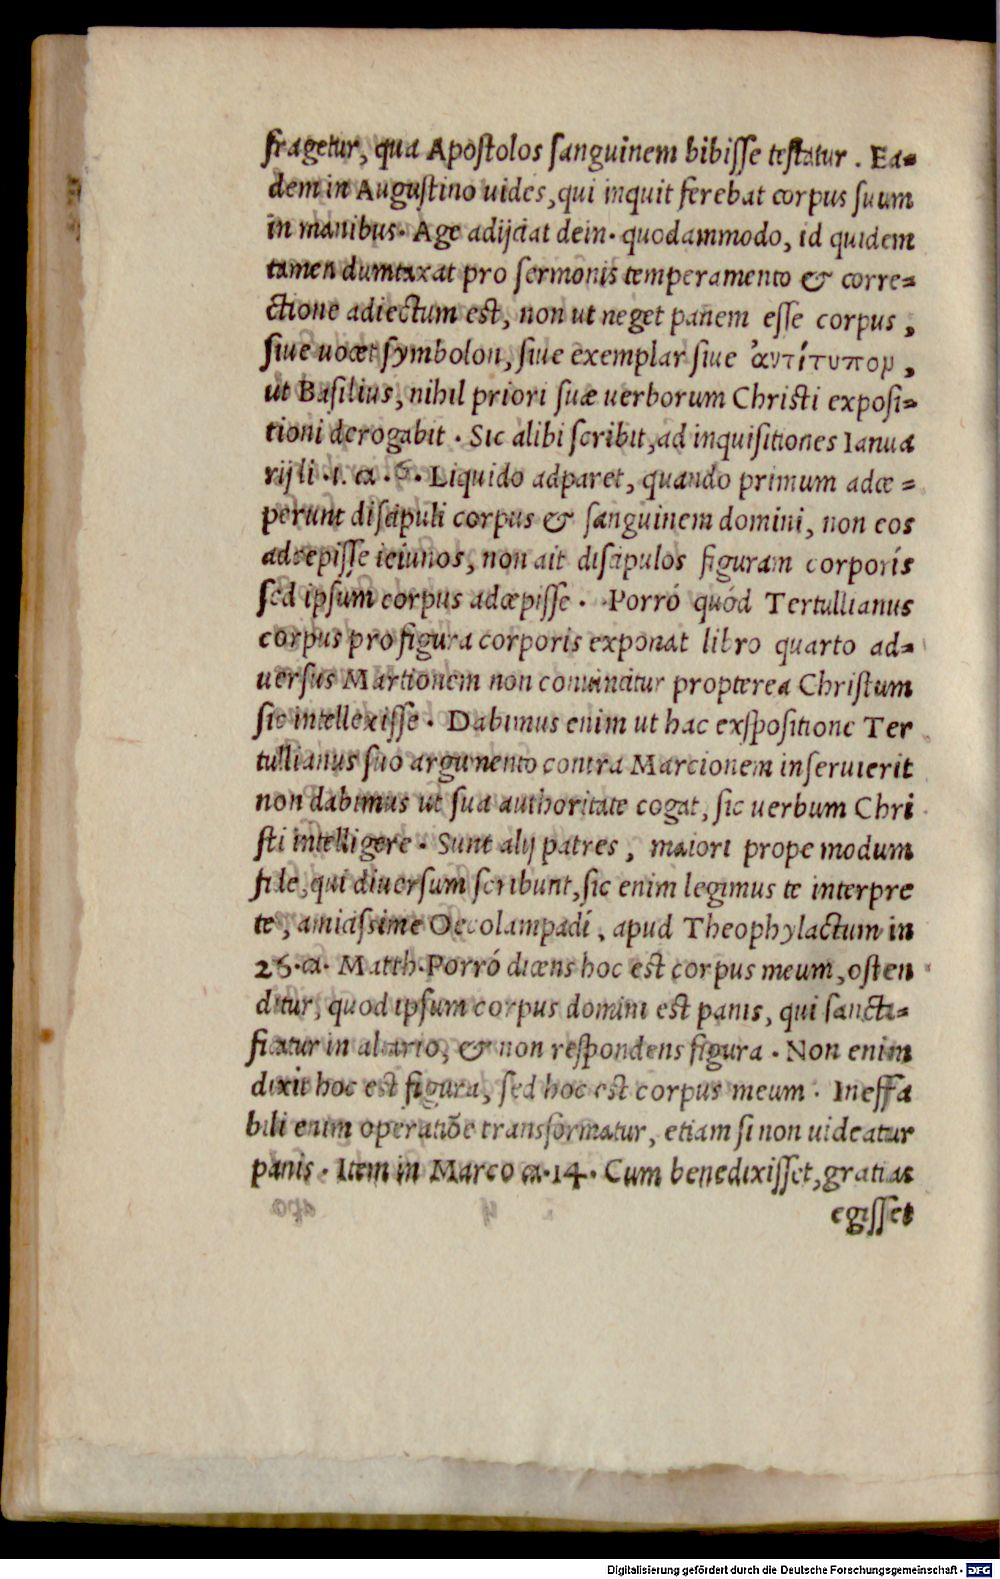 fragetur, qua Apostolos sanguinem bibisse testatur. Ea-
dem in Augustino uides, qui inquit ferebat corpus suum
in manibus. Age adijciat dein. quodammodo, id quidem
tamen dumtaxat pro sermonis temperamento & corre-
ctione adiectum est, non ut neget panem esse corpus,
siue uocet symbolon, siue exemplar siue ἀντίτυπον,
ut Basilius, nihil priori suæ uerborum Christi exposi-
tioni derogabit. Sic alibi scribit, ad inquisitiones Ianua
rij li. 1. ca. 6. Liquido adparet, quando primum adce-
perunt discipuli corpus & sanguinem domini, non eos
adcepisse ieiunos, non ait discipulos figuram corporis
sed ipsum corpus adcepisse. Porró quód Tertullianus
corpus pro figura corporis exponat libro quarto ad-
uersus Martionem non conuincitur propterea Christum
sic intellexisse. Dabimus enim ut hac exspositione Ter
tullianus suo argumento contra Marcionem inseruierit
non dabimus ut sua authoritate cogat, sic uerbum Chri
sti intelligere. Sunt alij patres, maiori prope modum
fide, qui diuersum scribunt, sic enim legimus te interpre
te, amicissime Oecolampadi, apud Theophylactum in
26. ca. Matth. Porró dicens hoc est corpus meum, osten
ditur, quod ipsum corpus domini est panis, qui sancti-
ficatur in altario, & non respondens figura. Non enim
dixit hoc est figura, sed hoc est corpus meum. Ineffa
bili enim operatiõe transformatur, etiam si non uideatur
panis. Item in Marco ca. 14. Cum benedixisset, gratias
egisset
Digitalisierung gefördert durch die Deutsche Forschungsgemeinschaft - DFG